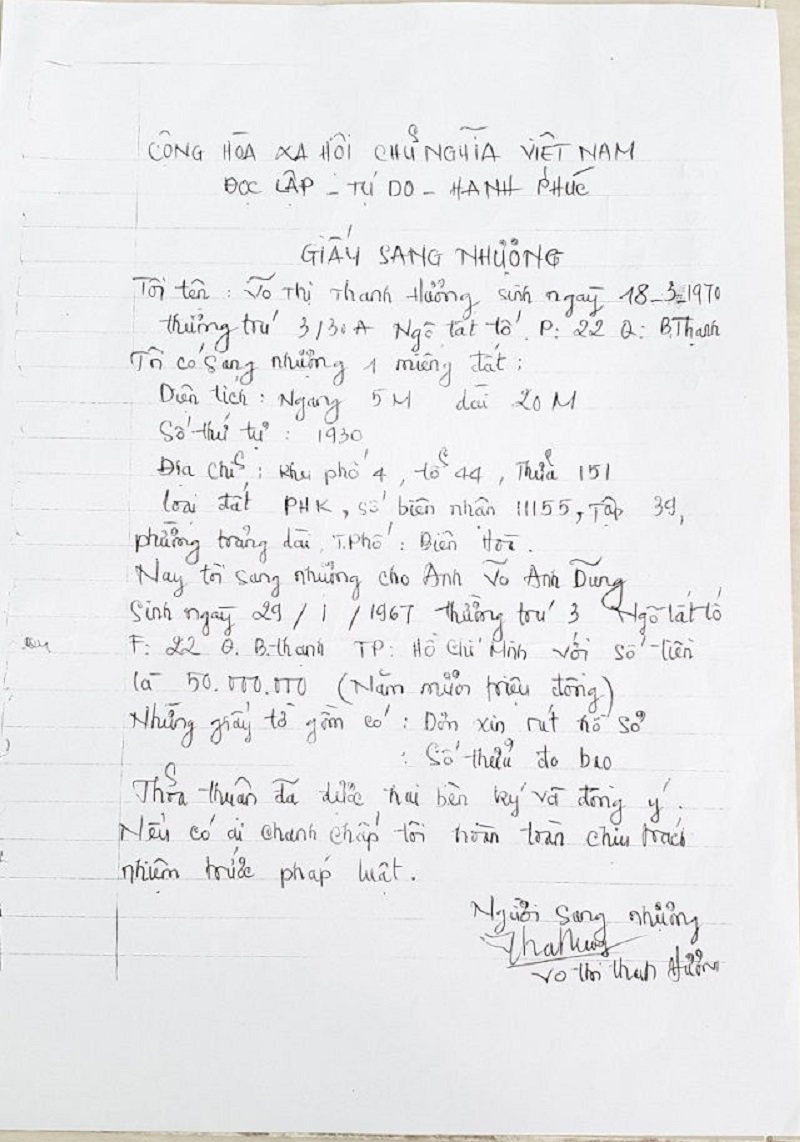 CỘNG HÒA XA HÔI CHỦ NGHĨA VIÊT NAM
ĐỌC LẬP - TỰ DO - HANH PHÚC
GIẤY SANG NHƯỢNG
Tôi tên : Võ Thị Thanh Hưởng sinh ngày 18-3-1970
thường trú 3/30A Ngô tất tố. P: 22 Q: B.Thạnh
Tôi có sang nhượng 1 miếng đất :
Diên tích : Ngang 5M dài 20M
Số thứ tự : 1930
Đia chỉ : khu phố 4, tổ 44, Thửa 151
loai đất PHK, số biên nhân 11155, Tập 39,
phường trảng dài, T.Phố : Biên Hòa.
Nay tôi sang nhường cho Anh Võ Anh Dũng
Sinh ngày 29/1/1967 thường trú 3 Ngô tất tố
F: 22 Q. B.thanh TP: Hồ Chí Minh với số tiền
là 50.000.000 (Năm mươi triệu đồng)
Những giấy tờ gồm có : Đơn xin rút hồ sơ
: Số thửa đo bao
Thỏa thuân đã được hai bên ký và đồng ý.
Nếu có ai chanh chấp tôi hoàn toàn chiu trách
nhiêm trước pháp luật.
Người sang nhượng
Vo thi thanh Hưởng